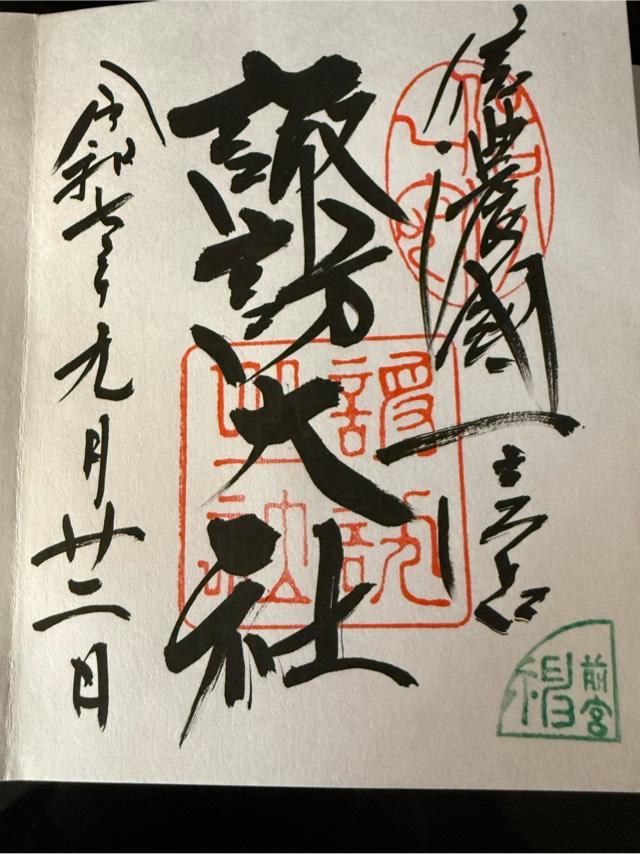 信濃國一之宮
諏訪大社
令和七年九月廿二日
前宮